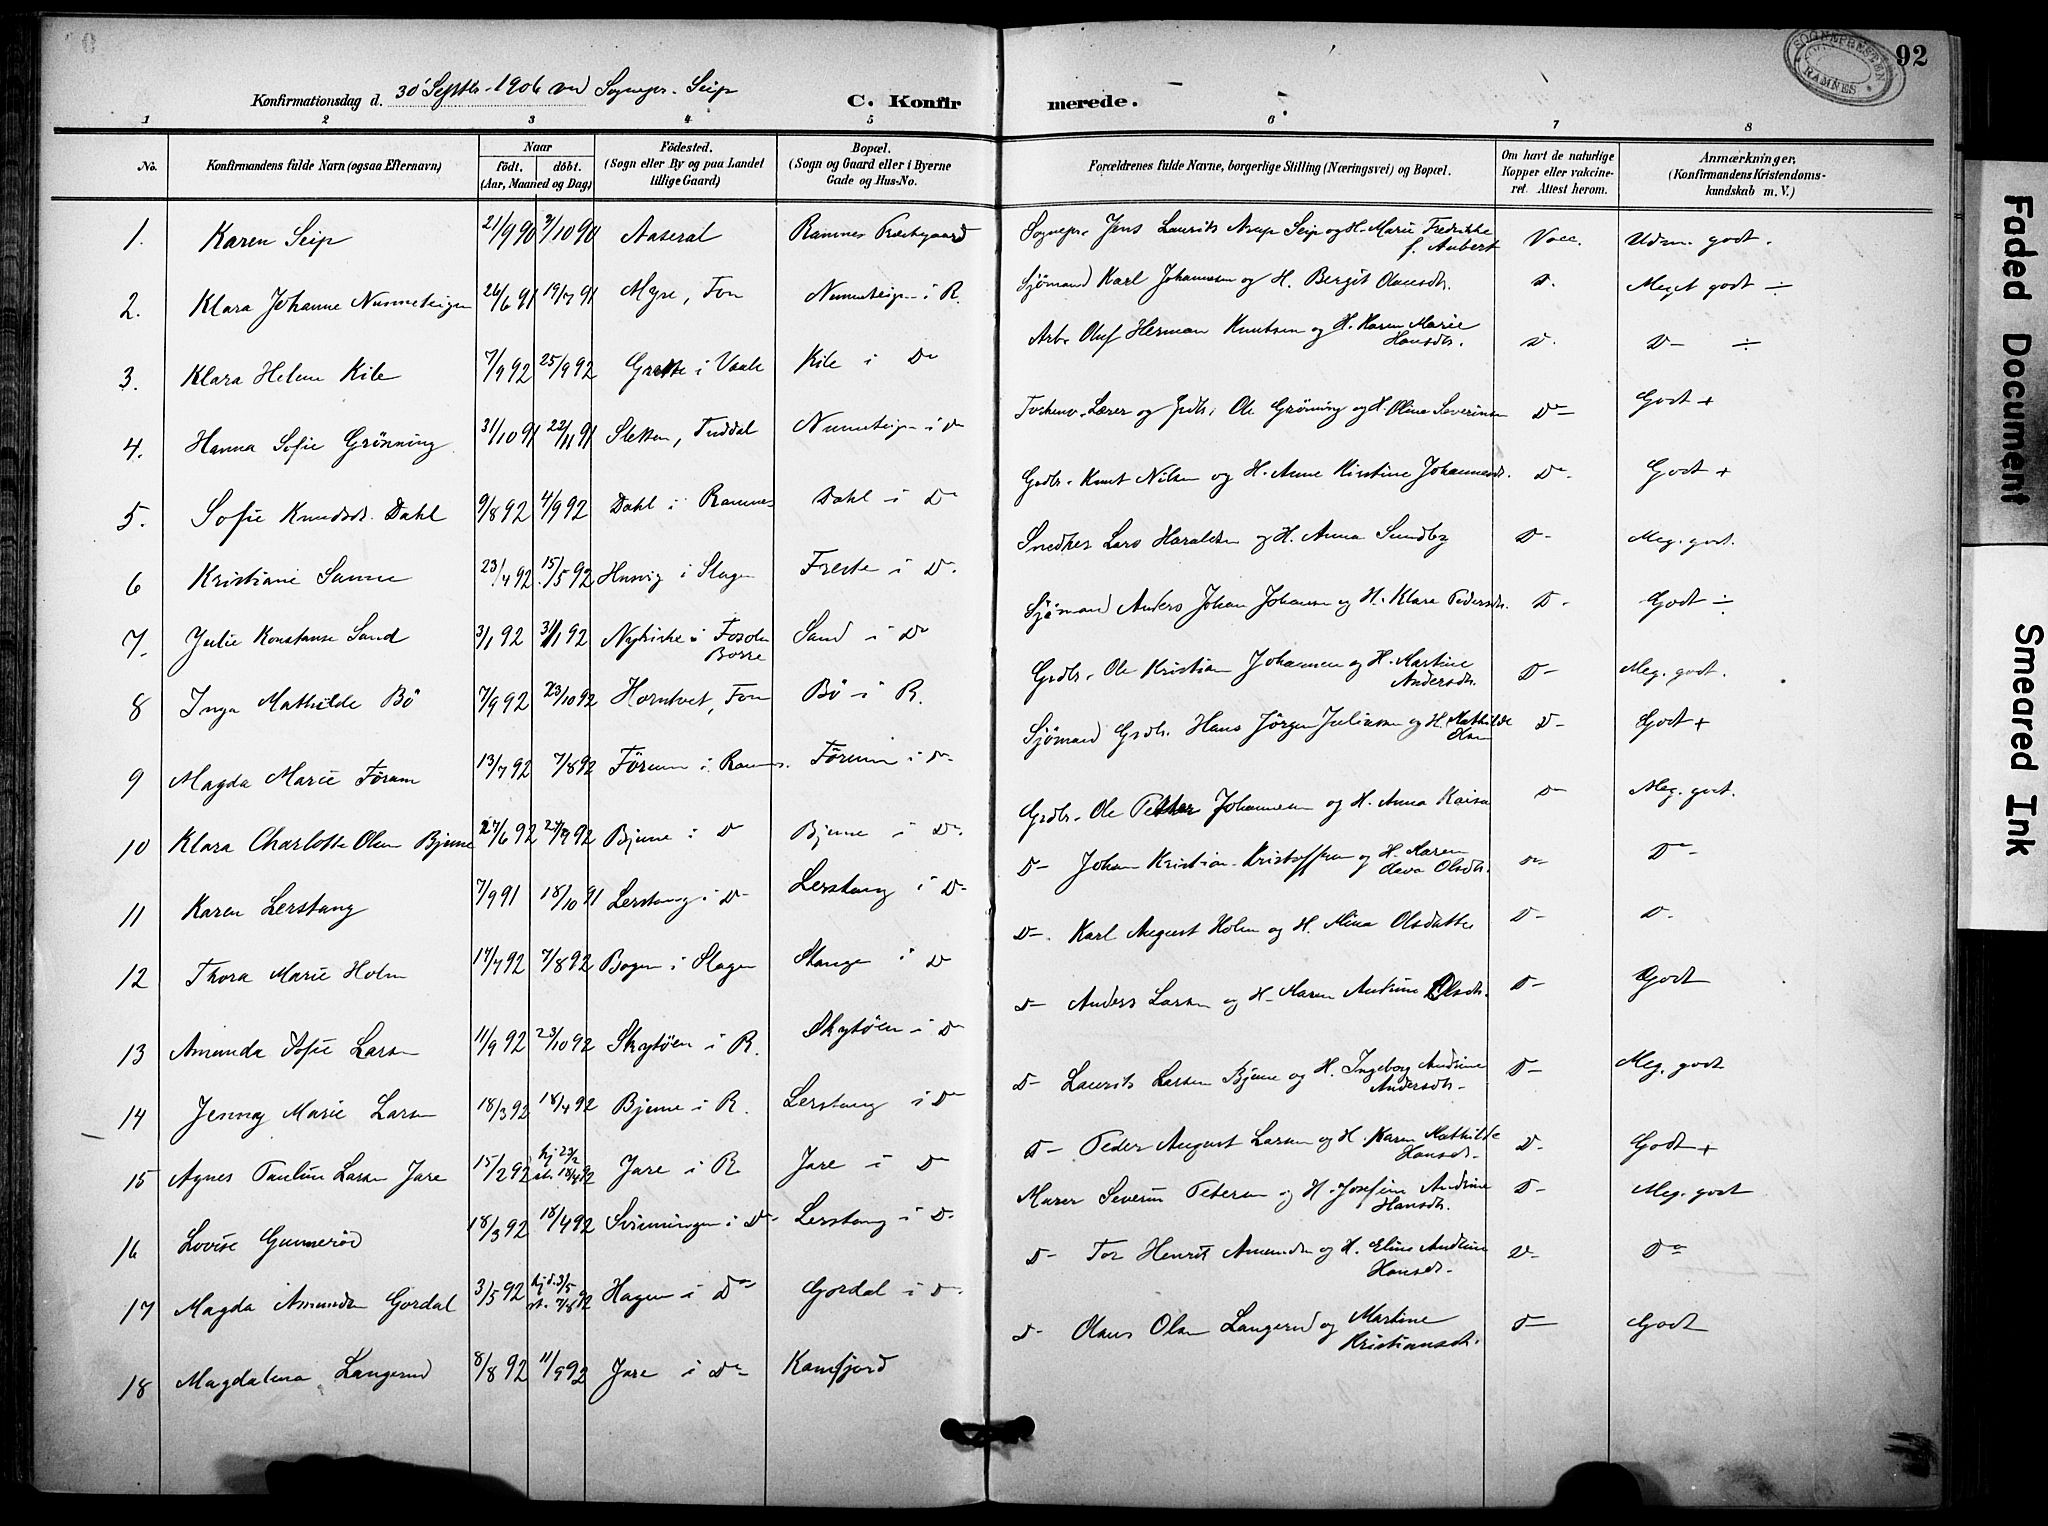 92
SOGNEPRESTEN
RAMNES
Faded Document
Smeared Ink
Konfirmationsdag d. 30 Septbr. 1906 ved Sognepr. Seip
C. Konfirmerede.
1 2 3 4 5 6 7 8
No.
Konfirmandens fulde Navn (ogsaa Efternavn)
Naar
födt. döbt.
(Aar, Maaned og Dag)
Födested.
(Sogn eller By og paa Landet
tillige Gaard)
Bopæl.
(Sogn og Gaard eller i Byerne
Gade og Hus-No.
Forældrenes fulde Navne, borgerlige Stilling (Næringsvei) og Bopæl.
Om havt de naturlige
Kopper eller vakcine-
ret. Attest herom.
Anmærkninger,
(Konfirmandens Kristendoms-
kundskab m. V.)
1. Karen Seip 21/9 90 3/10 90 Aaseral Ramnes Prestegaard Sognepr. Jens Laurits Arup Seip og H. Marie Fredrikke f. Aubert Vacc. Udm. godt.
2. Klara Johanne Nummeteigen 26/6 91 19/7 91 Myre, Fon Nummeteigen i R. Sjømand Karl Johannesen og H. Bergit Olausdtr. D. Meget godt ÷
3. Klara Helene Kile 7/9 92 25/9 92 Grette i Vaale Kile i Do Arb. Oluf Herman Knutsen og H. Karen Marie Hansdtr. D. D- ÷
4. Hanna Sofie Grönning 31/10 91 22/11 91 Sletten, Tuddal Nummeteigen i Do Lærer og Grdbr. Ole Grönning og H. Oline Severinsen D- Godt +
5. Sofie Knudsdtr. Dahl 9/8 92 4/9 92 Dahl i Ramnes Dahl i Do Grdbr. Knut Nilsen og H. Anne Kirstine Johannesdtr. D- Godt +
6 Kristiane Sanne 23/4 92 15/5 92 Husvig i Slagen Freste i D. Snedker Lars Haraldsen og H. Anna Sundby D- Meg. godt.
7. Julie Konstanse Sand 3/1 92 31/1 92 Nykirke i Borre Sand i Do Sjømand Anders Johan Johansen og H. Klara Pedersdtr. D- Godt ÷
8 Inga Mathilde Bö 7/9 92 23/10 92 Horntvet, Fon Bö i R. Grdbr. Ole Kristian Johannesen og H. Martine Andersdtr. D- Meg. godt.
9 Magda Marie Förum 13/7 92 7/8 92 Förum i Ramnes. Förum i Do Sjømand Grdbr. Hans Jörgen Juliussen og H. Mathilde Olsen D- Godt +
10 Klara Charlotte Olsen Bjune 27/6 92 27/7 92 Bjune i D Bjune i Do. Grdbr. Ole Petter Johannesen og H. Anna Kaisa D- Meg. godt.
11 Karen Lerstang 7/9 91 18/10 91 Lerstang i D- Lerstang i D- D- Johan Kristian Kristoffersen og H. Karen Olava Olsdtr. D- D-
12 Thora Marie Holm 17/7 92 7/8 92 Bogen i Slagen Stange i D D-. Karl August Holm og H. Mina Olsdatter D- D-
13 Amunda Sofie Larsen 11/9 92 23/10 92 Skytöen i R. Skytöen i Do D- Anders Larsen og H. Maren Antrine Olsdtr. D- Godt
14 Jenny Marie Larsen 18/3 92 18/4 92 Bjune i R. Lerstang i Do D- Laurits Larsen Bjune og H. Ingeborg Andrine Andersdtr. D- Meg. godt
15 Agnes Pauline Larsen Jare 15/2 92 hj 23/2 st. 18/4 92 Jare i R Jare i Do D- Peder August Larsen og H. Karen Mathilde Hansdtr. D- Godt +
16 Lovise Gunnerød 18/3 92 18/4 92 Svinningen i D- Lerstang i D- Murer Severin Petersen og H. Josefine Andrine Hansdtr. D- Meg. godt
17 Magda Amundsen Gordal 3/5 92 hj.d. 3/5 st. 7/8 92 Hagen i Do Gordal i D- D- Tor Henrik Amundsen og H. Eline Andrine Hansdtr. D- Do
18 Magdalena Langerud 8/8 92 11/9 92 Jare i Do Kamfjord D- Olaus Olsen Langerud og Martine Kristiansdtr. D- Godt